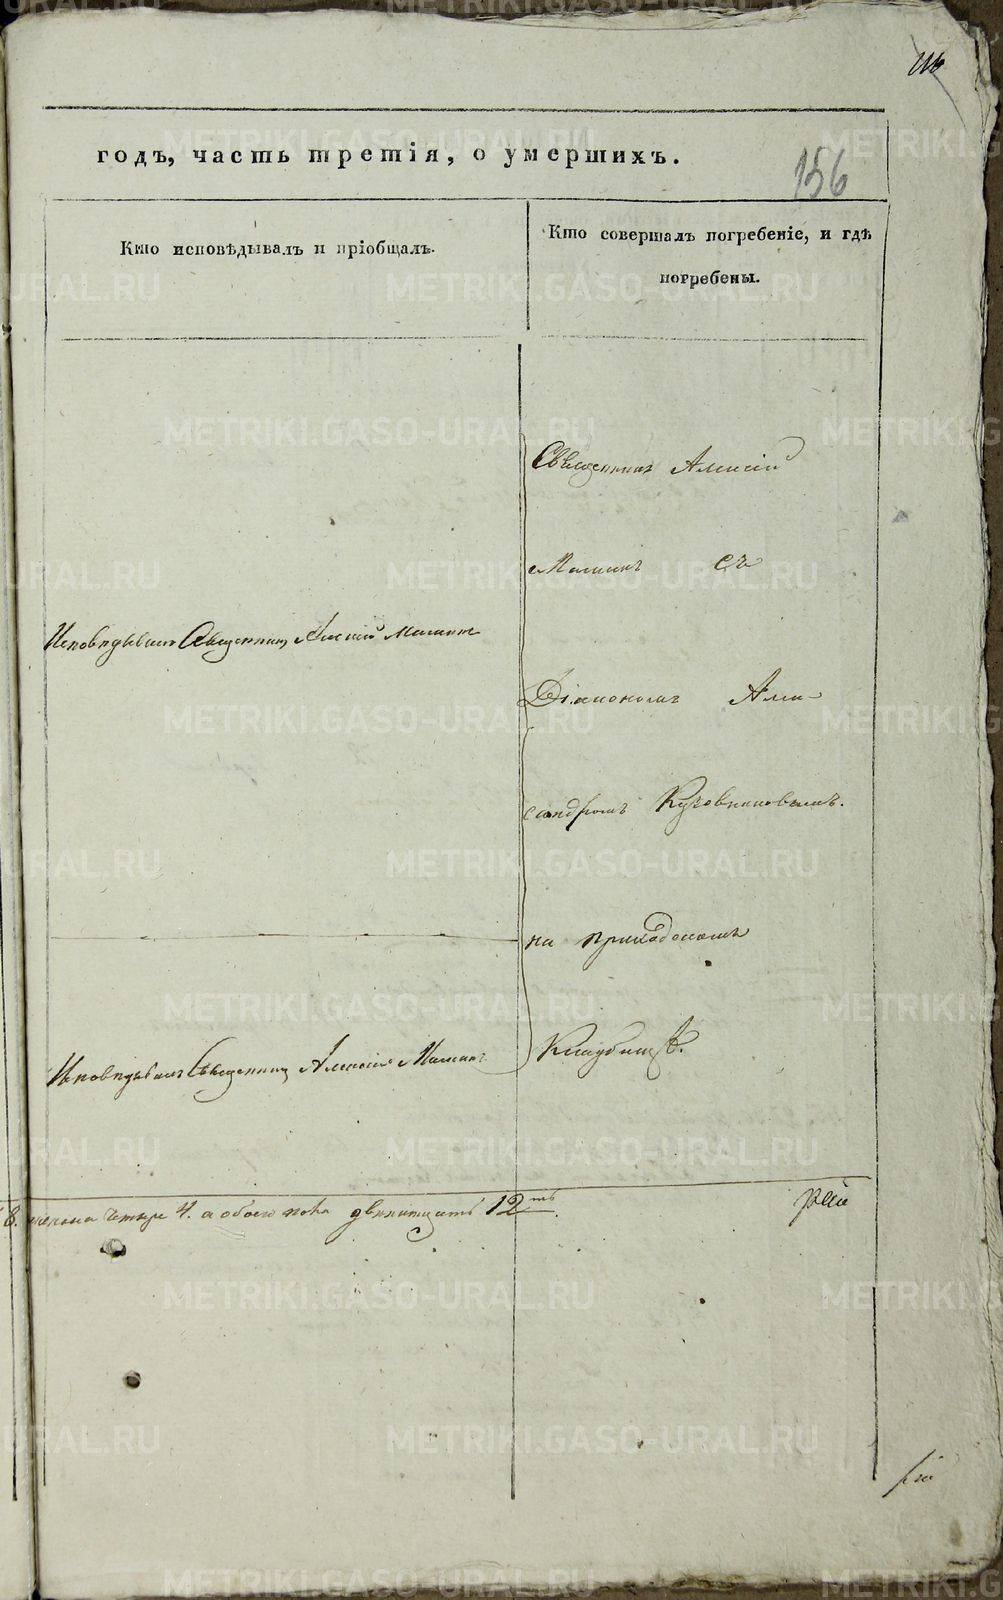 годъ, часть третія, о умершихъ.
156
Кто исповѣдывалъ и пріобщалъ.
Кто совершалъ погребеніе, и гдѣ
погребены.
Священникъ Алексій
Малинъ съ
Исповѣдывалъ Священникъ Алексій Малинъ
Діакономъ Алек-
сандромъ Кузовниковымъ.
на приходскомъ
Исповѣдывалъ Священникъ Алексій Малинъ
Кладбищѣ.
8. женска четыре 4. а обоего пола двенатцать 12ть
METRIKI.GASO-URAL.RU